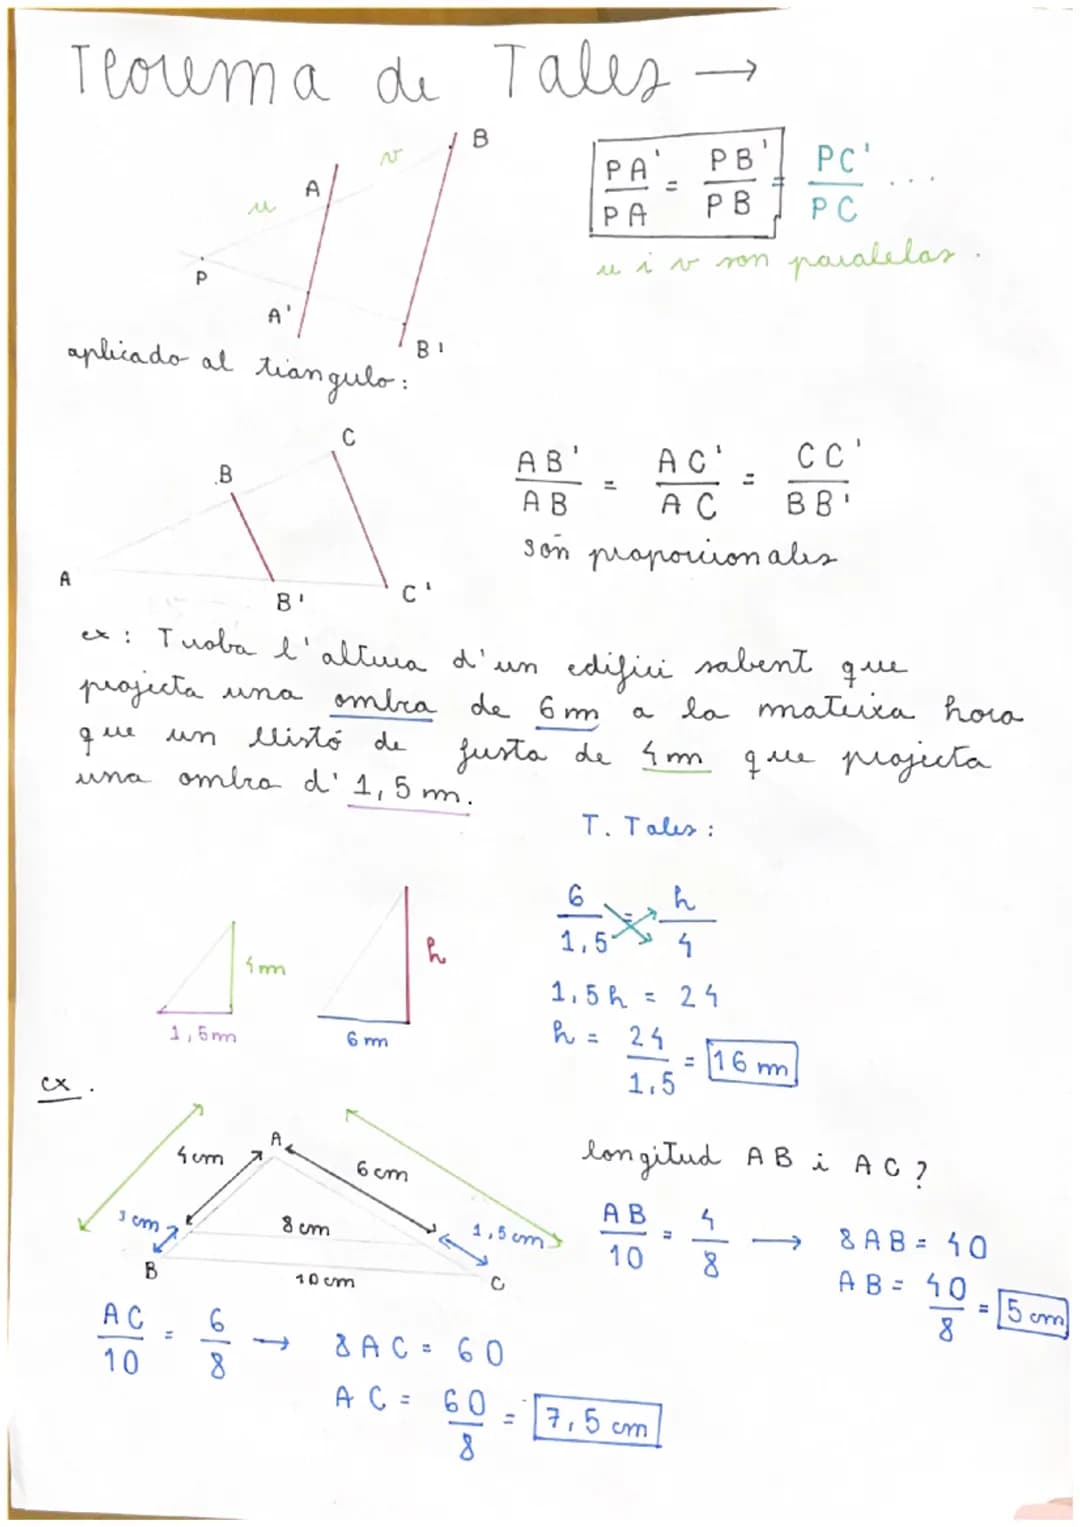 Teorema de Tales →
B
v
A
u
P
A'
B'
PA'/PA = PB'/PB = PC'/PC ...
u i v son paralelas.
aplicado al tiangulo:
C
B
A
B'
C'
AB'/AB = AC'/AC = CC'/BB'
són proporcionales
ex: Troba l'altura d'un edifici sabent que
projecta una ombra de 6m a la mateixa hora
que un llistó de fusta de 4m que projecta
una ombra d'1,5 m.
T. Tales:
4m
1,5m
h
6 m
6/1,5 = h/4
1,5h = 24
h = 24/1,5 = 16 m
ex.
A
4cm
6cm
3cm
8cm
1,5cm
B
10cm
C
longitud AB i AC?
AB/10 = 4/8 → 8AB = 40
AB = 40/8 = 5cm
AC/10 = 6/8 → 8AC = 60
AC = 60/8 = 7,5 cm